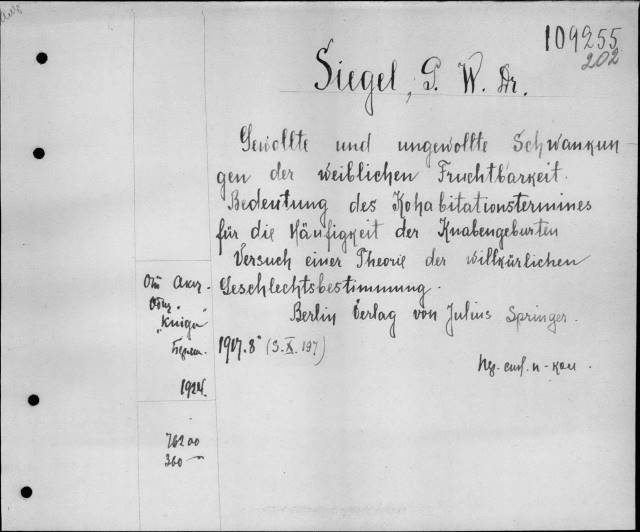 109255
202
Siegel, P. W. Dr.
Gewollte und ungewollte Schwankun
gen der weiblichen Fruchtbarkeit.
Bedeutung des Kohabitationstermines
für die Häufigkeit der Knabengeburten
Versuch einer Theorie der willkürlichen
Geschlechtsbestimmung.
Berlin Verlag von Julius Springer.
1917. 8° (S. X. 197)
От Акц.
Общ.
"Книга"
Берлин.
1924.
762 00
360